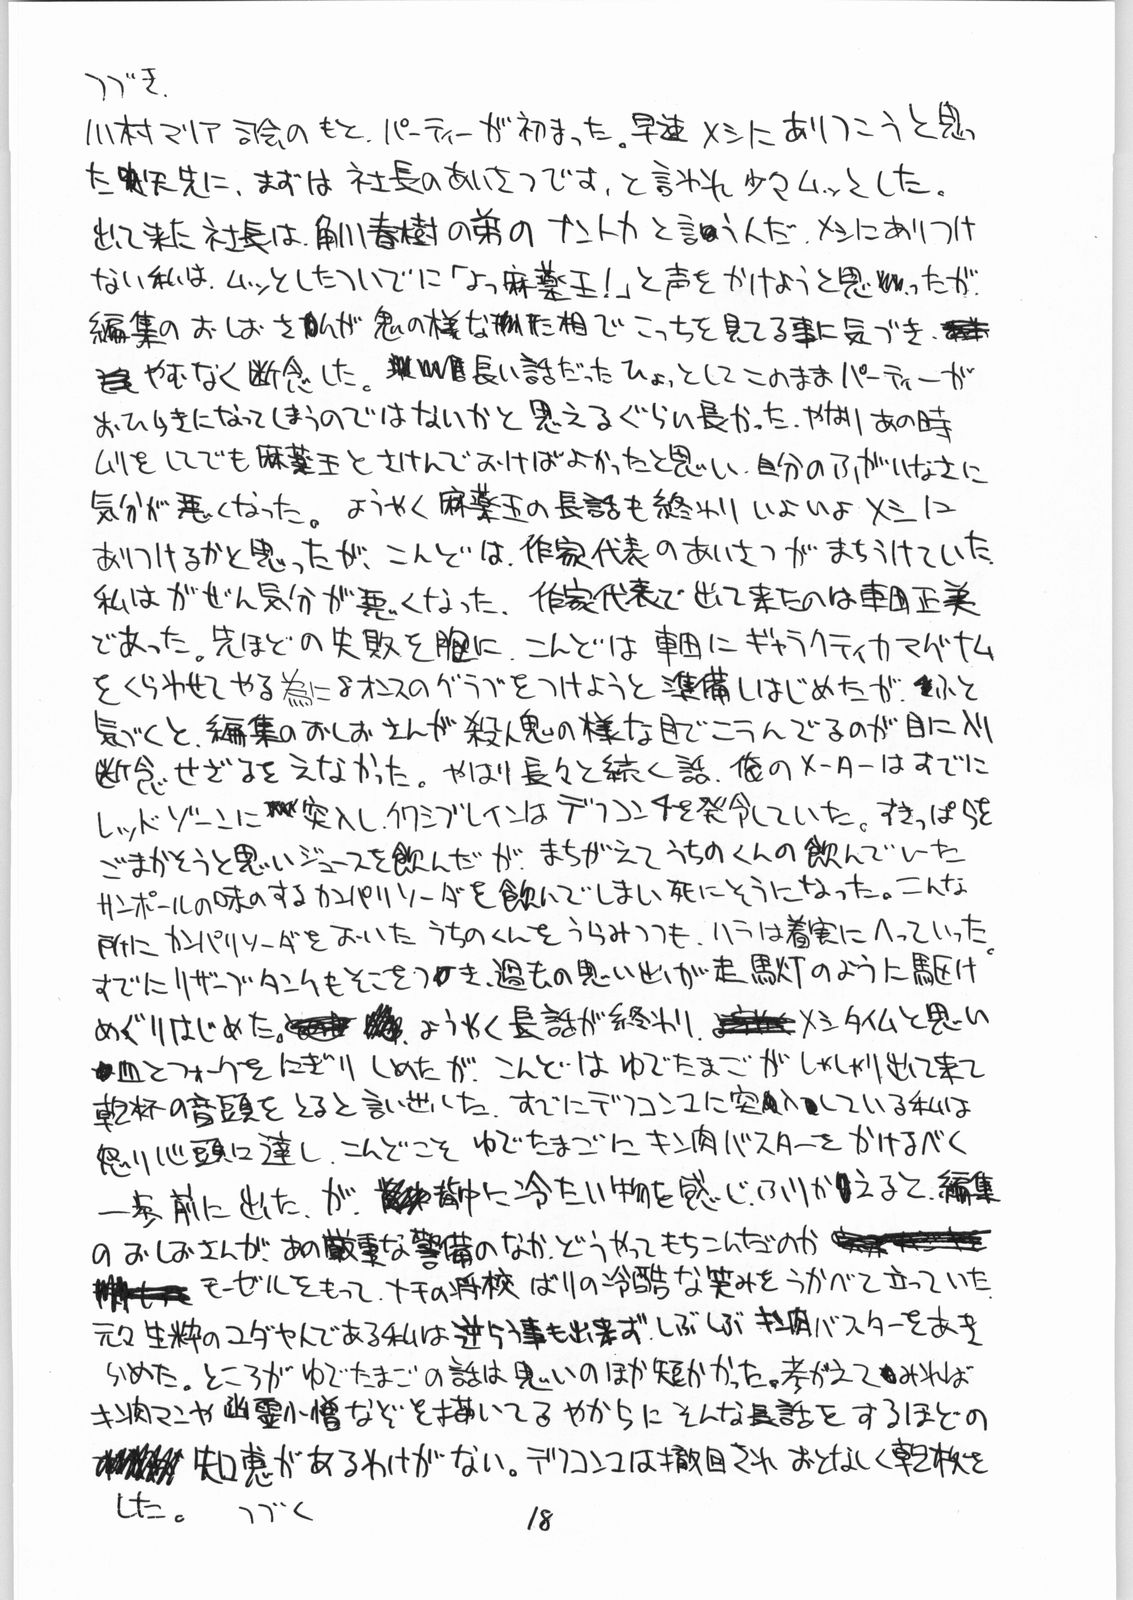 つづき.
川村マリア司会のもと、パーティーが初まった。早速メシにありつこうと思っ
た矢先に、まずは社長のあいさつです、と言われ少々ムッとした。
出て来た社長は、角川春樹の弟のナントカと言うんだ、メシにありつけ
ない私は、ムッとしたついでに「よっ麻薬王!」と声をかけようと思ったが、
編集のおしおさんが鬼の様な形相でこっちを見てる事に気づき、
やむなく断念した。長い話だったひょっとしてこのままパーティーが
おひらきになってしまうのではないかと思えるぐらい長かった、やはりあの時
ムリをしてでも麻薬王とさけんでおけばよかったと思い、自分のふがいなさに
気分が悪くなった。ようやく麻薬王の長話も終わりいよいよメシに
ありつけるかと思ったが、こんどは、作家代表のあいさつがまちうけていた、
私はがぜん気分が悪くなった、作家代表で出て来たのは車田正美
であった。先ほどの失敗を胸に、こんどは車田にギャラクティカマグナム
をくらわせてやる為に8オンスのグラブをつけようと準備しはじめたが、ふと
気づくと、編集のおしおさんが殺人鬼の様な目でこうんでるのが目に入り
断念せざるをえなかった。やはり長々と続く話、俺のメーターはすでに
レッドゾーンに突入し、イクシブレインはデフコン4を発令していた。すきっぱらを
ごまかそうと思いジュースを飲んだが、まちがえてうちのくんの飲んでいた
サンポールの味のするカンパリソーダを飲んでしまい死にそうになった。こんな
所にカンパリソーダをおいたうちのくんをうらみつつも、ハラは着実にへっていった。
すでにリザーブタンクもそこをつき、過去の思い出が走馬灯のように駆け
めぐりはじめた。ようやく長話が終わり、メシタイムと思い
皿とフォークをにぎりしめたが、こんどはゆでたまごがしゃしゃり出て来て
乾杯の音頭をとると言い出した、すでにデフコン2に突入している私は
怒り心頭に達し、こんどこそゆでたまごにキン肉バスターをかけるべく
一歩前に出た、が、背中に冷たい物を感じ、ふりかえると、編集
のおしおさんが、あの厳重な警備のなか、どうやってもちこんだのか
モーゼルをもって、ナチの将校ばりの冷酷な笑みをうかべて立っていた、
元々生粋のユダヤ人である私は逆らう事も出来ず、しぶしぶキン肉バスターをあき
らめた。ところがゆでたまごの話は思いのほか短かかった。考がえてみれば
キン肉マンや幽霊小僧などを描いてるやからにそんな長話をするほどの
知恵があるわけがない。デフコン2は撤回されおとなしく乾杯を
した。つづく
18